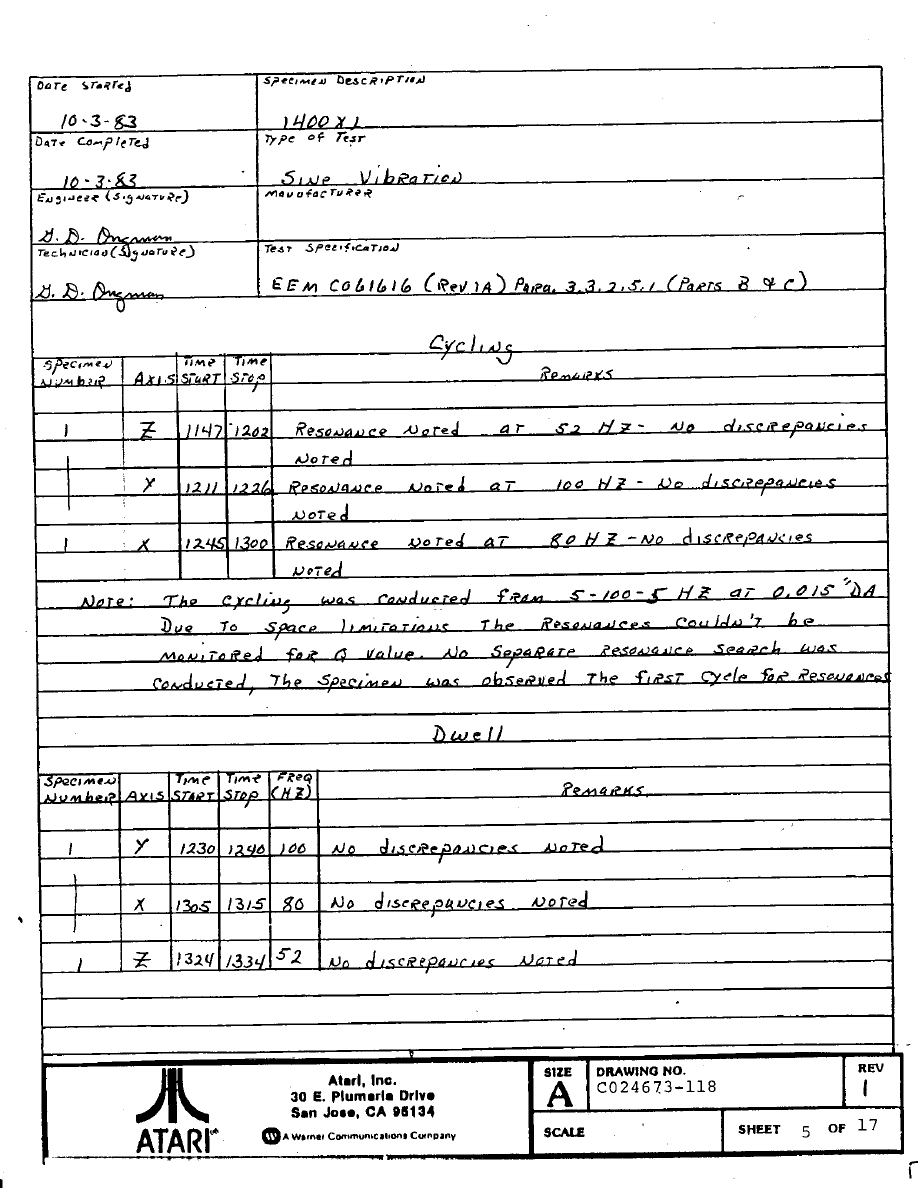 Date Started
Specimen Description
10-3-83
1400 XL
Date Completed
Type of Test
10-3-83
Sine Vibration
Engineer (Signature)
Manufacturer
G. D. Ongman
Technician (Signature)
Test Specification
G. D. Ongman
EEM C061616 (Rev 1A) Para. 3.3.2.5.1 (Parts B & C)
Cycling
Specimen Number
Axis
Time Start
Time Stop
Remarks
1 Z 1147 1202 Resonance Noted at 52 HZ - No discrepancies
Noted
Y 1211 1226 Resonance Noted at 100 HZ - No discrepancies
Noted
1 X 1245 1300 Resonance Noted at 80 HZ - No discrepancies
Noted
Note: The cycling was conducted from 5-100-5 HZ at 0.015" DA
Due to space limitations the Resonances couldn't be
monitored for Q value. No Separate Resonance Search was
conducted, The specimen was observed the first cycle for Resonances
Dwell
Specimen Number
Axis
Time Start
Time Stop
Freq (HZ)
Remarks
1 Y 1230 1240 100 No discrepancies Noted
X 1305 1315 80 No discrepancies Noted
1 Z 1324 1334 52 No discrepancies Noted
ATARI
Atari, Inc.
30 E. Plumeria Drive
San Jose, CA 95134
A Warner Communications Company
SIZE
A
DRAWING NO.
C024673-118
REV
1
SCALE
SHEET 5 OF 17